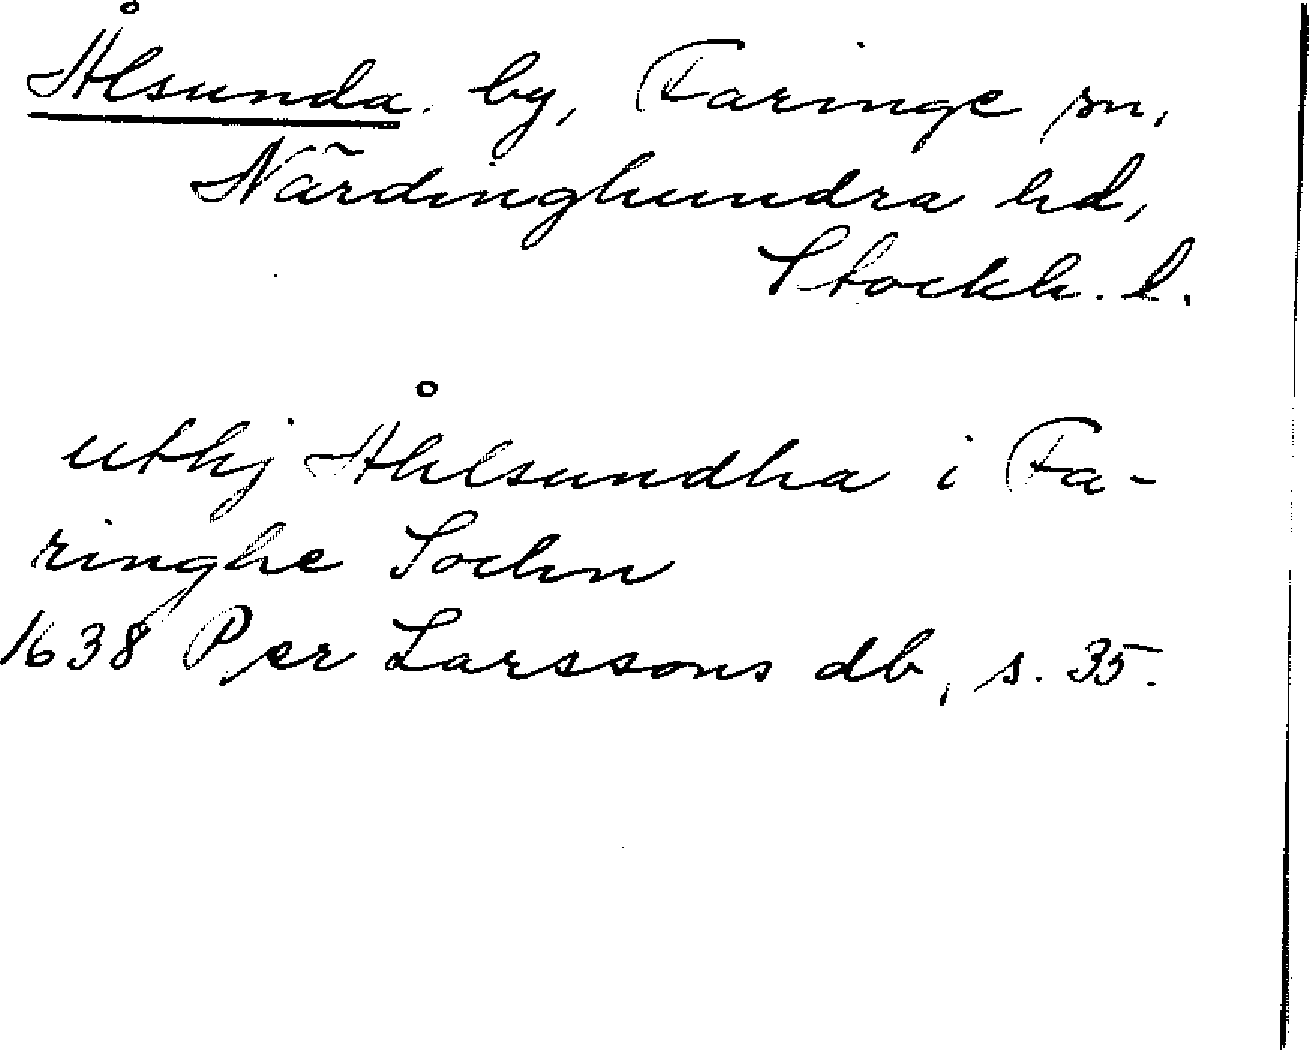 Ålsunda by, Faringe sn,
Närdinghundra hd,
Stockh. l.
uthj Åhlsundha i Fa-
ringhe Sochn
1638 Per Larssons db, s. 35.